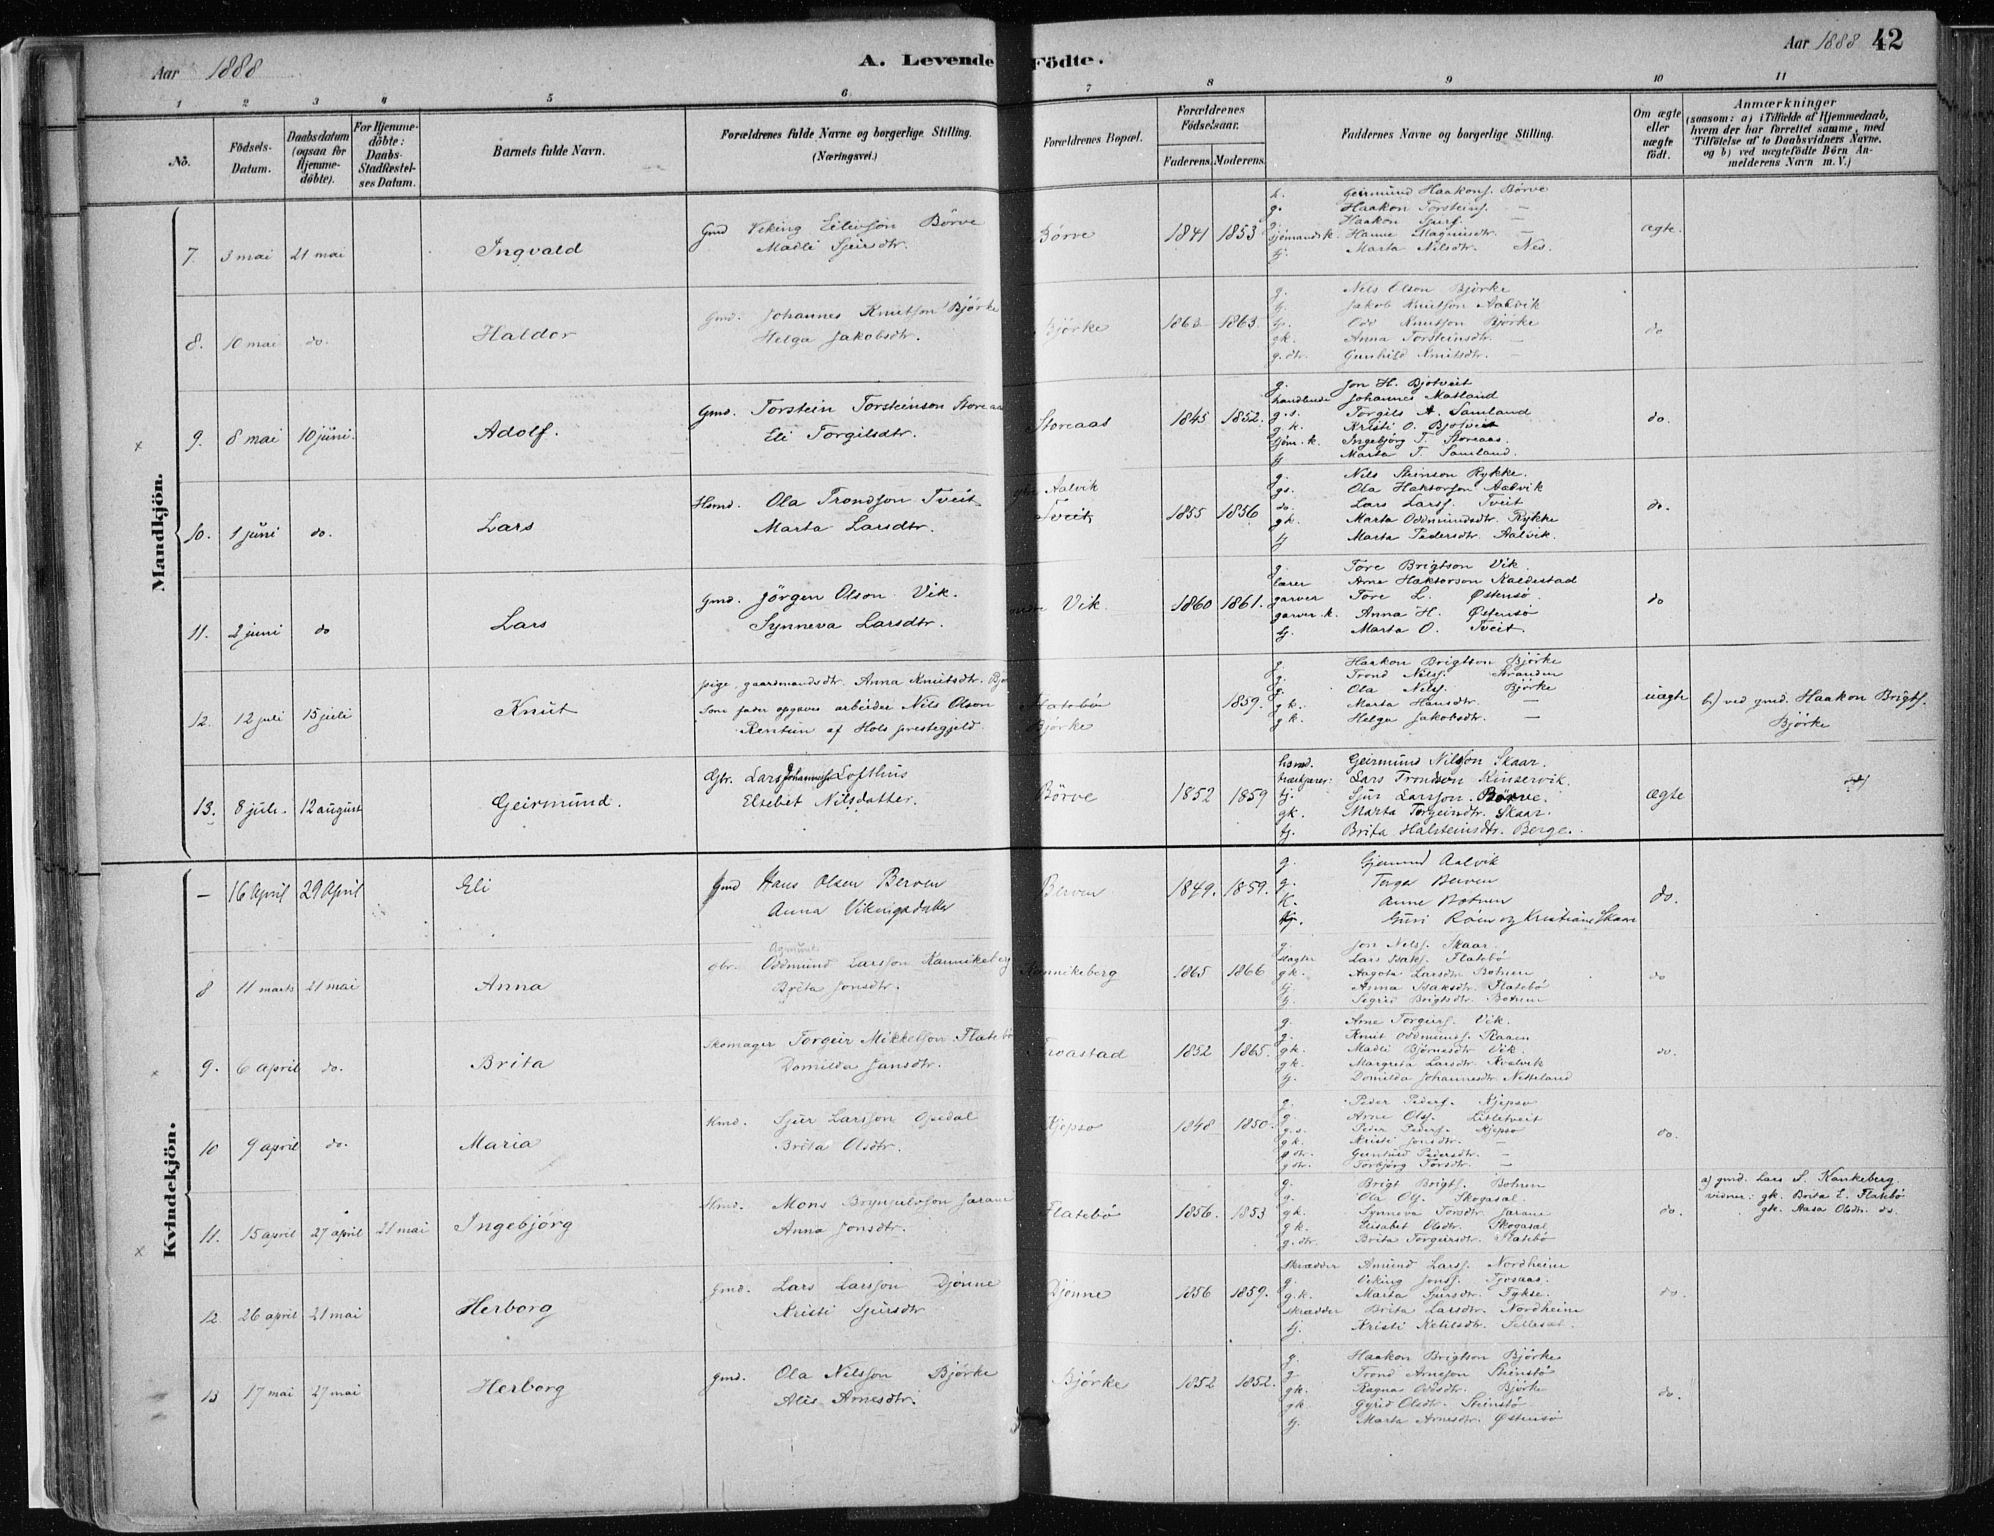 Aar 1888
A. Levende Födte.
Aar 1888 42
1 2 3 4 5 6 7 8 9 10 11
No. Födsels-Datum. Daabsdatum (ogsaa for Hjemme-döbte). For Hjemme-döbte: Daabs-Stadfestel-ses Datum. Barnets fulde Navn. Forældrenes fulde Navne og borgerlige Stilling. (Næringsvei.) Forældrenes Bopæl. Forældrenes Födselsaar. Faderens. Moderens. Faddernes Navne og borgerlige Stilling. Om ægte eller uægte födt. Anmærkninger (saasom: a) i Tilfælde af Hjemmedaab, hvem der har forrettet samme, med Tilföielse af to Daabsvidners Navne, og b) ved uægtefödte Börn An-melderens Navn m. V.)
Mandkjön.
7. 3 mai 21 mai Ingvald Gmd Viking Eilivson Börve
Madli Sjursdtr. Börve 1841 1853 ægte.
Geirmund Haakons. Börve
g. Haakon Torsteins. —
Haakon Sjurs. —
sjömandsk. Hanne Magnusdtr. —
tj. Marta Nilsdtr. Nes.
8. 10 mai do. Haldor Gmd. Johannes Knutson Björke
Helga Jakobsdtr. Björke 1863. do
g. Nels Olson Björke
tj. Jakob Knutson Aalvik
tj. Odd Knutson Björke
gk. Anna Torsteinsdtr. —
g.dtr. Gunhild Knutsdtr. —
9. 8 mai 10 juni. Adolf. Gmd. Torstein Torsteinson Storeaas
Eli Torgilsdtr. Storeaas 1845 1852. do.
g. Jon H. Bjotveit
handlende Johannes Matland
g.s. Torgils A. Samland
g.k. Kristi O. Bjotveit
sjöm.k. Ingebjörg T. Storeaas.
tj Marta T. Samland.
10. 1 juni do. Lars Hsmd. Ola Trondson Tveit
Marta Larsdtr. Aalvik
Tveit 1855 1856 do.
g. Nils Steinson Rykke.
gs. Ola Haktorson Aalvik
do. Lars Larss. Tveit
gk. Marta Oddmundsdtr. Rykke
tj Marta Pedersdtr. Aalvik.
11. 2 juni do Lars Gmd. Jörgen Olson Vik.
Synneva Larsdtr. Vik. 1860 1861. do
g. Tore Brigtson Vik.
lærer Arne Haktorson Kaldestad
garver Tore L. Østensö
garver.k. Anna H. Østensö
tj. Marta O. Tveit.
12. 12 juli 15 juli Knut pige gaardmandsdtr. Anna Knutsdtr.
Som fader opgives arbeider Nils Olson
af Hols prestegjeld. Flatebö
Björke 1859. uægte b.) ved gmd. Haakon Brigts.
Björke
g. Haakon Brigtson Björke
g. Trond Nilss. Stranden
g. Ola Nilss. Björke
gk. Marta Hansdtr. —
gk. Helga Jakobsdtr. —
13. 8 juli. 12 august Geirmund. Gbr. Lars Johanness. Lofthus
Elsebet Nilsdatter. Börve 1852 1859 ægte
husmd. Geirmund Nilsson Skaar.
Lars Trondson Kinservik.
tj. Sjur Larsson Börve.
gk. Marta Torgeirsdtr. Skaar.
tj. Brita Halsteinsdtr. Berge.
Kvindekjön.
— 16 April 29 April Eli Gmd Hans Olsen Berven
Anna Vikingsdatter Berven 1849. 1859. do.
g. Gjermund Aalvik
g. Berven
K. Anne Botnen
tj. Guri Röen og Kristiane Skaar
8 11 marts 21 mai Anna Gbr. Oddmund Larsson Kannikeberg
Brita Jonsdtr. Kannikeberg 1865 1866 do
g. Jon Nelss. Skaar.
Lars Isaks. Flatebö
gk. Aagota Larsdtr. Botnen
tj. Anna Isaksdtr. Flatebö
tj. Sigrid Brigtsdtr. Botnen
9. 6 april do. Brita Skomager Torgeir Mikkelson Flatebö
Domilda Jansdtr. Froastad 1852 1865. do.
g. Arne Torgeirs. Vik.
g. Knut Oddmunds. Raaen
gk. Madli Björnesdtr. Vik.
gk. Margreta Larsdtr. Kvalvik
tj. Domilda Johannesdtr. Netteland
10 9 april do. Maria Hmd. Sjur Larsson Opedal
Brita Olsdtr. Kjepso 1848 1850. do.
g. Peder Peders. Kjepso
g. Arne Ols. Litletveit
g.s. Peder Peders. Kjepso
gk. Kristi Jonsdtr. —
g.dtr. Pedersdtr. —
g.dtr. Torbjörg Torsdtr. —
11. 15 april 27 april 21 mai Ingebjörg Hmd. Mons Brynjulvson Jaran
Anna Jonsdtr. Flatebö 1856. 1853 do.
g. Brigt Brigts. Botnen
g. Ola Ols. Skogasæl.
gk. Synneva Torsdtr. Jarane
gk. Elisabet Olsdtr. Skogasæl
g.dtr. Brita Torgeirsdtr. Flatebö
a) gmd. Lars S. Kankeberg
vidner: gk. Brita E. Flatebö
gk. Aasa Olsdtr. do.
12. 26 april 21 mai Herborg Gmd. Lars Larsson Djönne
Kristi Sjursdtr. Djönne 1856 1859. do.
skrædder Amund Larss. Nordheim
g. Viking Jonss. Tjosaas.
g.k. Marta Sjursdtr. Tykse.
skrædder Brita Larsdtr. Nordheim
tj. Kristi Ketilsdtr.
13 17 mai 27 mai Herborg gmd. Ola Nelsson Björke
Alis Arnesdtr. Björke 1852 1852. do.
g. Haakon Brigtson Björke
g. Trond Arneson Steinstö
gk. Ragna Oddsdtr. Björke
gk. Gyrid Olsdtr. Steinstö
tj. Marta Arnesdtr. Østensö